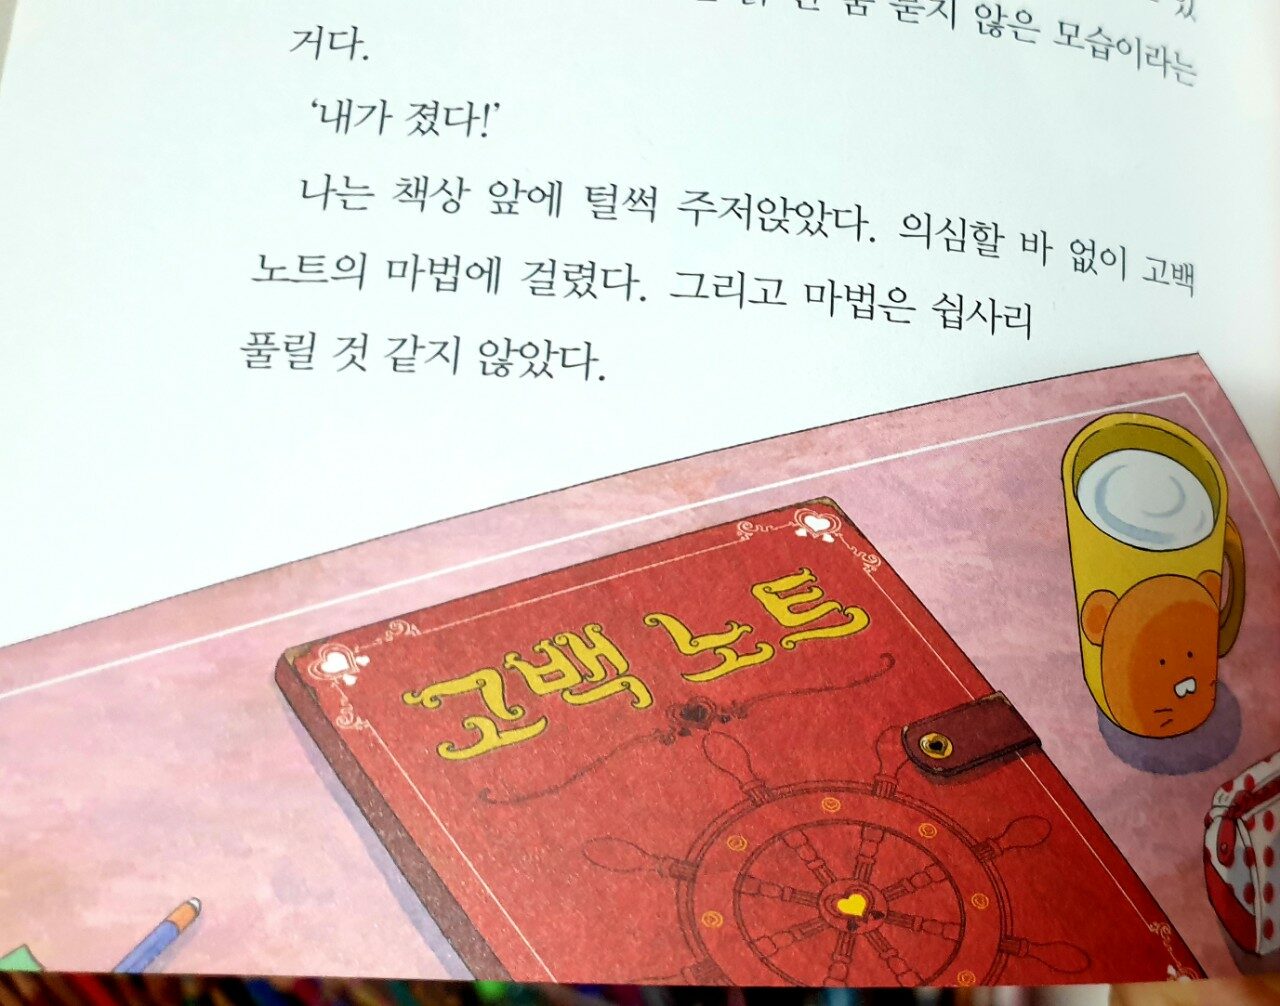 묻지 않은 모습이라는
거다.
‘내가 졌다!’
나는 책상 앞에 털썩 주저앉았다. 의심할 바 없이 고백
노트의 마법에 걸렸다. 그리고 마법은 쉽사리
풀릴 것 같지 않았다.
고백 노트